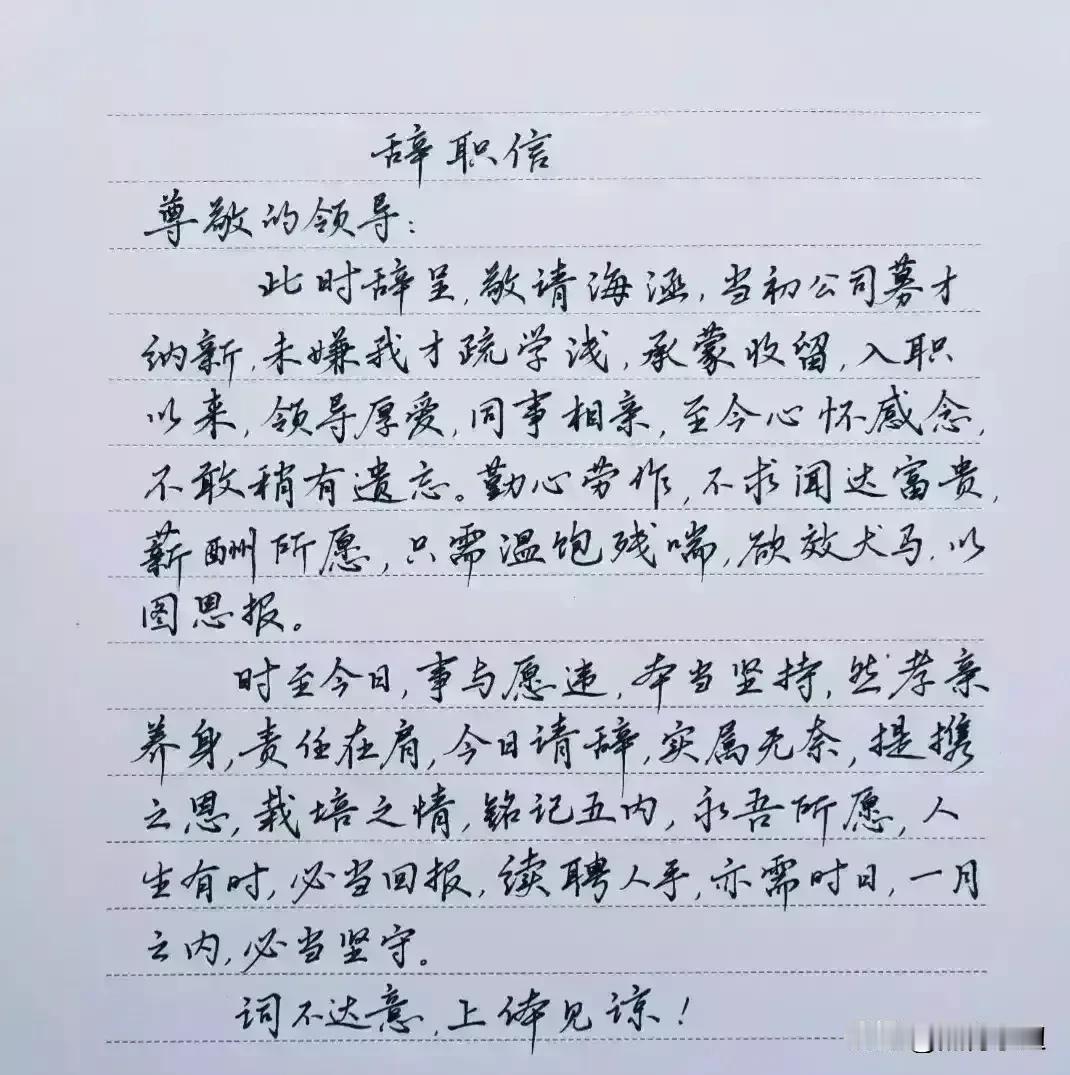 辞职信
尊敬的领导：
此时辞呈，敬请海涵，当初公司募才
纳新，未嫌我才疏学浅，承蒙收留，入职
以来，领导厚爱，同事相亲，至今心怀感念，
不敢稍有遗忘。勤心劳作，不求闻达富贵，
薪酬所愿，只需温饱残喘，欲效犬马，以
图思报。
时至今日，事与愿违，本当坚持，然孝亲
养身，责任在肩，今日请辞，实属无奈，提携
之恩，栽培之情，铭记五内，永吾所愿，人
生有时，必当回报，续聘人手，亦需时日，一月
之内，必当坚守。
词不达意，上体见谅！